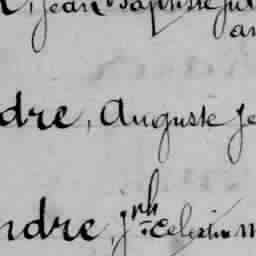 Jean Baptiste Jul
an
dre, Auguste Je
ndre, jph Celestin M